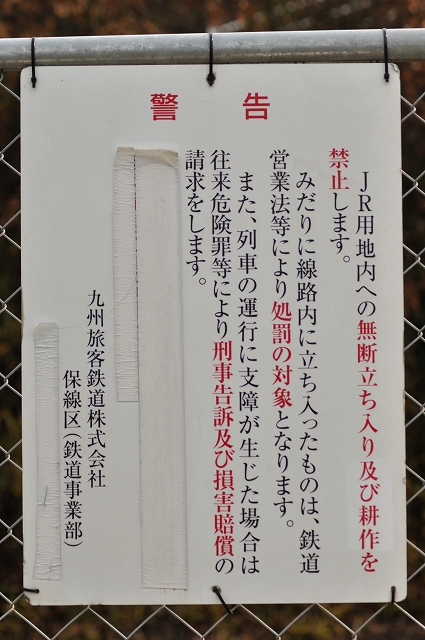 警告
JR用地内への無断立ち入り及び耕作を
禁止します。
みだりに線路内に立ち入ったものは、鉄道
営業法等により処罰の対象となります。
また、列車の運行に支障が生じた場合は
往来危険罪等により刑事告訴及び損害賠償の
請求をします。
九州旅客鉄道株式会社
保線区(鉄道事業部)